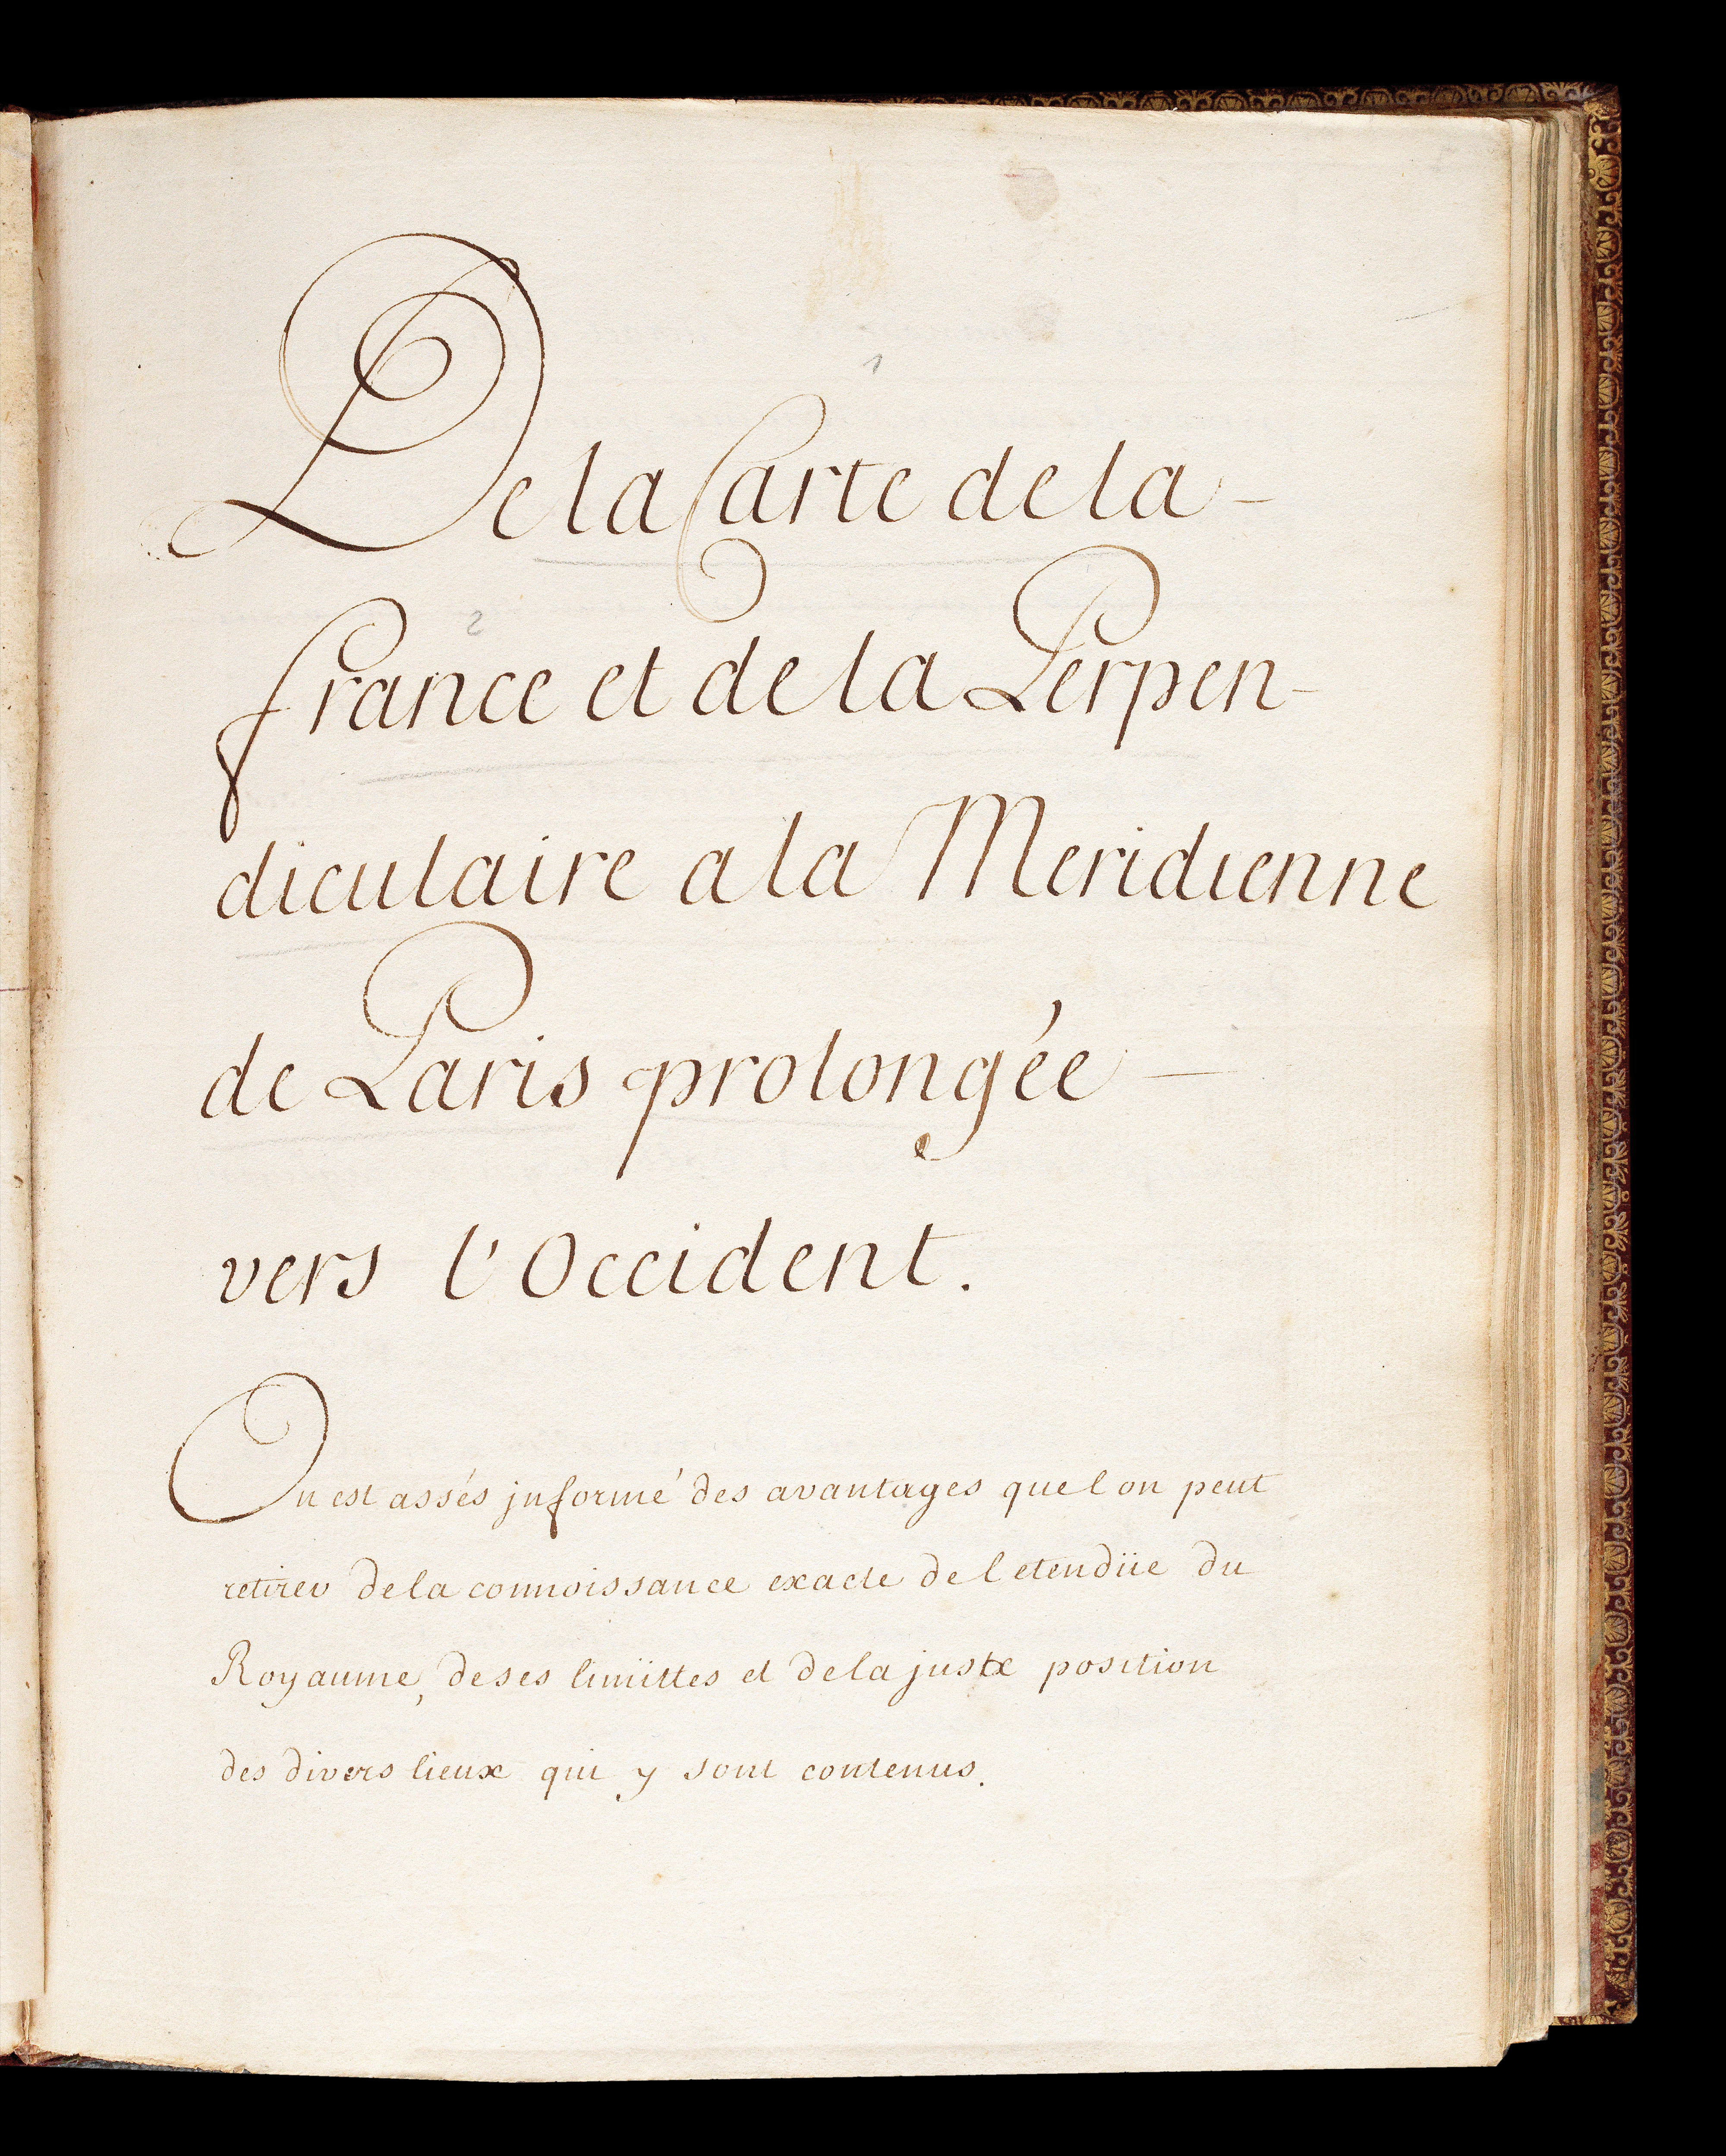 1
De la Carte de la -
2
france et de la Perpen-
diculaire a la Meridienne
de Paris prolongée —
vers l'Occident.
On est assés jnformé des avantages que l on peut
retirer de la connoissance exacte de l etendüe du
Royaume, de ses limittes et de la juste position
des divers lieux qui y sont contenus.